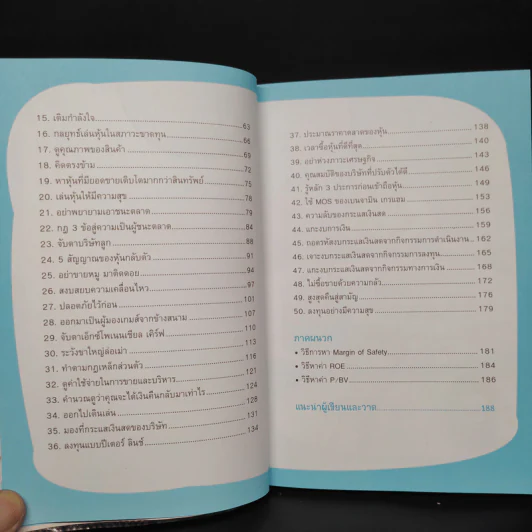 15. เติมกำลังใจ 63
16. กลยุทธ์เล่นหุ้นในสภาวะขาดทุน 66
17. ดูคุณภาพของสินค้า 69
18. คิดตรงข้าม 72
19. หาหุ้นที่มียอดขายเติบโตมากกว่าสินทรัพย์ 75
20. เล่นหุ้นให้มีความสุข 78
21. อย่าพยายามเอาชนะตลาด 79
22. กฎ 3 ข้อสู่ความเป็นผู้ชนะตลาด 84
23. จับตาบริษัทลูก 88
24. 5 สัญญาณของหุ้นกลับตัว 91
25. อย่าขายหมู มาติดดอย 94
26. สงบสยบความเคลื่อนไหว 97
27. ปลอดภัยไว้ก่อน 101
28. ออกมาเป็นผู้มองเกมส์จากข้างสนาม 107
29. จับตาเอ็กซ์โพเนนเชียล เคิร์ฟ 110
30. ระวังขาใหญ่ล่อเม่า 113
31. ทำตามกฎเหล็กส่วนตัว 116
32. ดูค่าใช้จ่ายในการขายและบริหาร 121
33. คำนวณดูว่าคุณจะได้เงินคืนกลับมาเท่าไร 124
34. ออกไปเดินเล่น 128
35. มองที่กระแสเงินสดของบริษัท 131
36. ลงทุนแบบปีเตอร์ ลินช์ 134
37. ประมาณราคาตลาดของหุ้น 138
38. เวลาซื้อหุ้นที่ดีที่สุด 140
39. อย่าห่วงภาวะเศรษฐกิจ 143
40. คุณสมบัติของบริษัทที่ปรับตัวได้ดี 146
41. รู้หลัก 3 ประการก่อนเข้าถือหุ้น 149
42. ใช้ MOS ของเบนจามิน เกรแฮม 153
43. ความลับของกระแสเงินสด 156
44. แกะงบการเงิน 159
45. ถอดรหัสงบกระแสเงินสดจากกิจกรรมการดำเนินงาน 162
46. เจาะงบกระแสเงินสดจากกิจกรรมการลงทุน 165
47. แกะงบกระแสเงินสดจากกิจกรรมทางการเงิน 168
48. ไม่ซื้อขายด้วยความกลัว 172
49. สูงสุดคืนสู่สามัญ 176
50. ลงทุนอย่างมีความสุข 179
ภาคผนวก
• วิธีการหา Margin of Safety 181
• วิธีหาค่า ROE 184
• วิธีหาค่า P/BV 186
แนะนำผู้เขียนและวาด 188